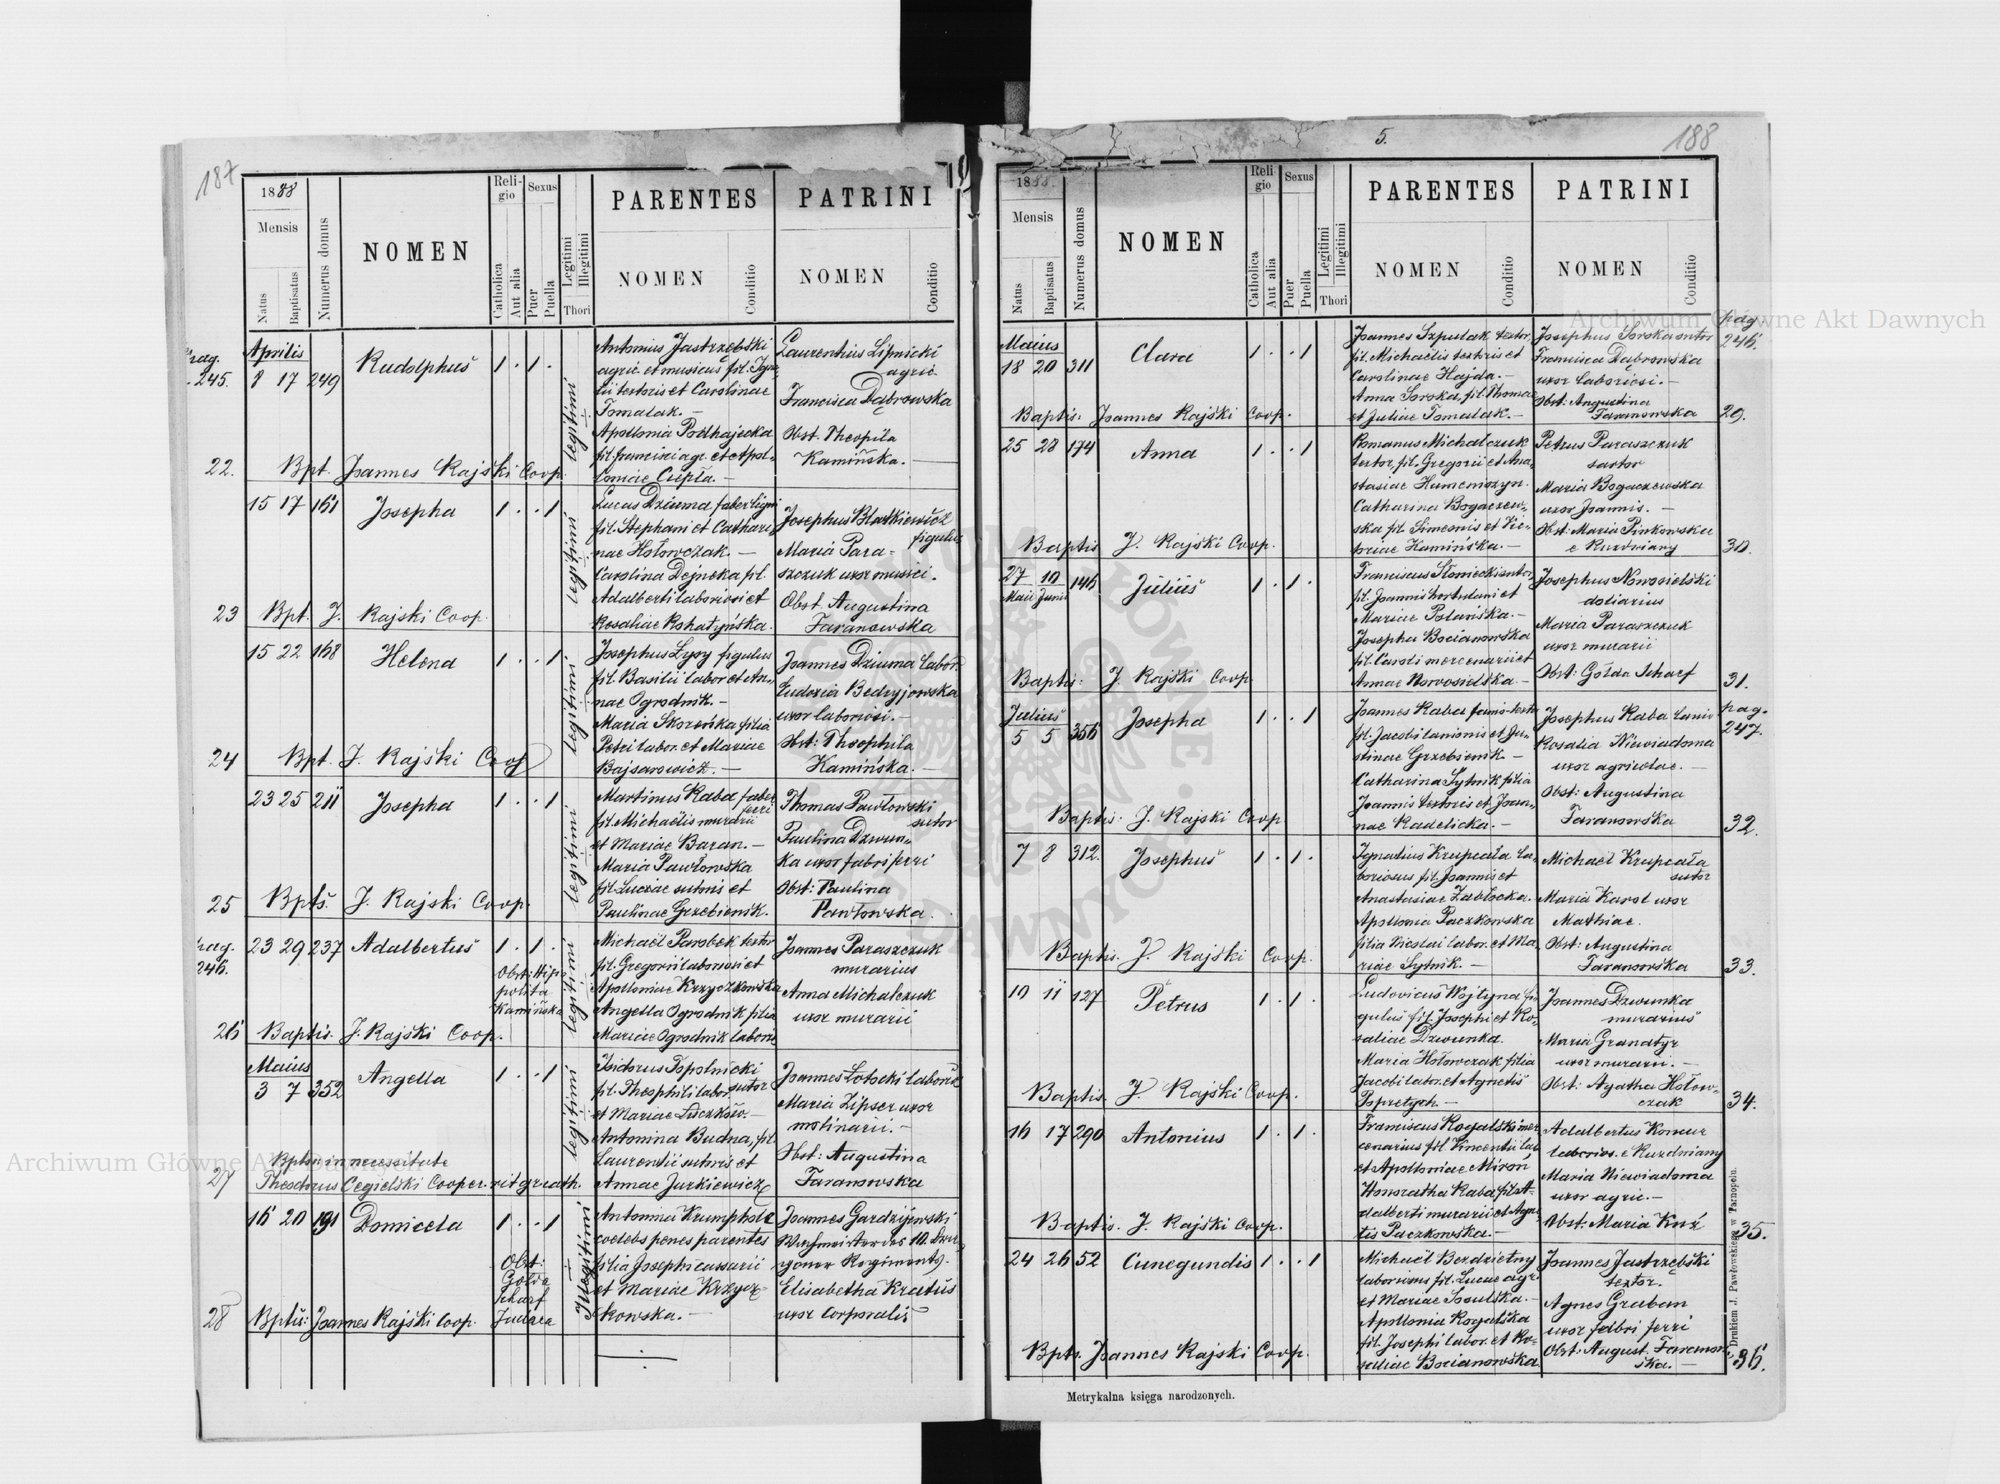 187
1888
Mensis
Natus
Baptisatus
Numerus domus
NOMEN
Reli-
gio
Catholica
Aut alia
Sexus
Puer
Puella
Legitimi
Illegitimi
Thori
PARENTES
NOMEN
Conditio
PATRINI
NOMEN
Conditio
pag.
245.
Aprilis
8 17 249 Rudolphus 1 . 1 .
legitimi
Antonius Jastrzębski
agric. et musicus fil. Igna-
tii textoris et Carolinae
Tomalak. —
Apollonia Podhajecka
fil. Francisci agr. et Apol-
loniae Ciepła. —
Laurentius Lipnicki
agric.
Francisca Dąbrowska
Obst. Theophila
Kamińska. —
22. Bpt. Joannes Rajski Coop.
15 17 161 Josepha 1 . . 1
legitimi
Lucas Dziuma faber lign.
fil. Stephani et Cathari-
nae Hołowczak. —
Carolina Dejneka fil.
Adalberti laboriosi et
Rosaliae Rohatyńska.
Josephus Blatkiewicz
figulus
Maria Para-
szczuk uxor musici.
Obst. Augustina
Taranowska
23 Bpt. J. Rajski Coop.
15 22 168 Helena 1 . . 1
legitimi
Josephus Łysy figulus
fil. Basilii labor. et An-
nae Ogrodnik. —
Maria Skoreńka filia
Petri labor. et Mariae
Bajsarowicz. —
Joannes Dziuma labor.
Eudoxia Bedryjowska
uxor laboriosi. —
Obst: Theophila
Kamińska. —
24 Bpt. J. Rajski Coop
23 25 211 Josepha 1 . . 1
legitimi
Martinus Raba faber
ferri
fil. Michaëlis murarii
et Mariae Baran. —
Maria Pawłowska
fil. Lucae sutoris et
Paulinae Grzebienik.
Thomas Pawłowski
sutor
Paulina Dzwun-
ka uxor fabri ferri
Obst: Paulina
Pawłowska.
25 Bptš. J. Rajski Coop.
pag.
246.
23 29 237 Adalbertus 1 . 1 .
Obst: Hip-
polita
Kamińska
legitimi
Michaël Parobek textor
fil. Gregorii laboriosi et
Apolloniae Krzyczkowska
Angella Ogrodnik filia
Mariae Ogrodnik labori
Joannes Paraszczuk
murarius
Anna Michalczuk
uxor murarii
26 Baptis. J. Rajski Coop.
Maius
3 7 352 Angella 1 . . 1
legitimi
Isidorus Topolnicki
sutor
fil. Theophili labor.
et Mariae
Antonina Budna, fil.
Laurentii sutoris et
Annae Jurkiewicz
Joannes Łotocki laborios.
Maria Lipser uxor
molinarii. —
Obst: Augustina
Taranowska
Bptm in necessitate
27 Theodorus Cegielski Cooper. rit. gr. cath.
16 20 191 Domicela 1 . . 1
Obst:
Golda
Scharf
Judaea
Illegitimi
Antonina Krumpholc
coelebs penes parentes
filia Josephi cassarii
et Mariae Krzycz-
kowska. —
Joannes Gardzijewski
Wachmeister des 10. Dra-
goner Regiments.
Elisabetha Kratus
uxor corporalis
28 Bptš: Joannes Rajski Coop.
5.
188
1888.
Mensis
Natus
Baptisatus
Numerus domus
NOMEN
Reli
gio
Catholica
Aut alia
Sexus
Puer
Puella
Legitimi
Illegitimi
Thori
PARENTES
NOMEN
Conditio
PATRINI
NOMEN
Conditio
pag.
246.
Maius
18 20 311 Clara 1 . . 1
Joannes Szpulak textor,
fil. Michaëlis textoris et
Carolinae Hajda. —
Anna Soroka, fil. Thomae
et Juliae Tomalak. —
Josephus Soroka sutor
Francisca Dąbrowska
uxor laboriosi. —
Obst: Augustina
Taranowska
Baptis: Joannes Rajski Coop. 29.
25 28 174 Anna 1 . . 1
Romanus Michalczuk
textor, fil. Gregorii et Ana-
stasiae Humeniszyn.
Catharina Bogaczew-
ska fil. Simeonis et Vic-
toriae Kamińska. —
Petrus Paraszczuk
sartor
Maria Bogaczewska
uxor Joannis. —
Obst: Maria Pinkowska
e Kuzdniany
Baptis J. Rajski Coop. 30.
27 10 146 Julius 1 . 1 .
Maii Junii
Franciscus Słoniecki sutor,
fil. Joannis hortulani et
Mariae Polańska. —
Josepha Bocianowska
fil. Caroli mercenarii et
Annae Nowosielska. —
Josephus Nowosielski
doliarius
Maria Paraszczuk
uxor murarii
Obst: Golda Scharf
Baptis: J. Rajski Coop 31.
Julius
5 5 356 Josepha 1 . . 1
pag.
247.
Joannes Raba
fil. Jacobi lanionis et Ju-
stinae Grzebienik. —
Catharina Sytnik filia
Joannis textoris et Joan-
nae Radelicka. —
Josephus Raba lanio
Rosalia Niewiadoma
uxor agricolae. —
Obst: Augustina
Taranowska
Baptis: J. Rajski Coop 32.
7 8 312. Josephus 1 . 1 .
Ignatius Krupcała la-
boriosus fil. Joannis et
Anastasiae Zabłocka.
Apollonia Paczkowska
filia Nicolai labor. et Ma-
riae Sytnik. —
Michaël Krupcała
sutor
Maria Karol uxor
Mathiae.
Obst: Augustina
Taranowska
Baptis. J. Rajski Coop. 33.
10 11 127 Petrus 1 . 1 .
Ludovicus Wojtyna fi-
gulus fil. Josephi et Ro-
saliae Dzwunka.
Maria Hołowczak filia
Jacobi labor. et Agnetis
Popretych. —
Joannes Dzwunka
murarius
Maria Granatyr
uxor murarii. —
Obst: Agatha Hołow-
czak
Baptis. J. Rajski Coop. 34.
16 17 290 Antonius 1 . 1 .
Franciscus Rogalski mer
cenarius fil. Vincentii lab
et Apolloniae Miron
Honoratha Raba fil. A-
dalberti murarii et Agne-
tis Paczkowska. —
Adalbertus Komur
laborios. e Kuzdniany
Maria Niewiadoma
uxor agric. —
Obst: Maria Kuź
Baptis. J. Rajski Coop. 35.
24 26 52 Cunegundis 1 . . 1
Michaël Berdzietny
laboriosus fil. Lucae agr.
et Mariae Sosulska. —
Apollonia Rogalska
fil. Josephi labor. et Ro-
saliae Bocianowska
Joannes Jastrzębski
textor.
Agnes Graban
uxor fabri ferri
Obst: August. Taranow-
ska. —
Bpts. Joannes Rajski Coop. 36.
Metrykalna księga narodzonych.
Drukiem J. Pawłowskiego w Tarnopolu.
Archiwum Główne Akt Dawnych
Archiwum Główne Akt Dawnych